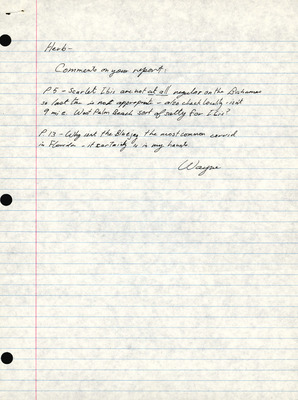 Herb-
Comments on your report:
P.5 - Scarlet Ibis are not at all regular on the Bahamas
so last ten is not appropriate - also check locality - isnt
9 mi E. West Palm Beach sort of salty for Ibis?
P.13 - Why isnt the Bluejay the most common corvid
in Florida - it certainly is in my hands
Wayne